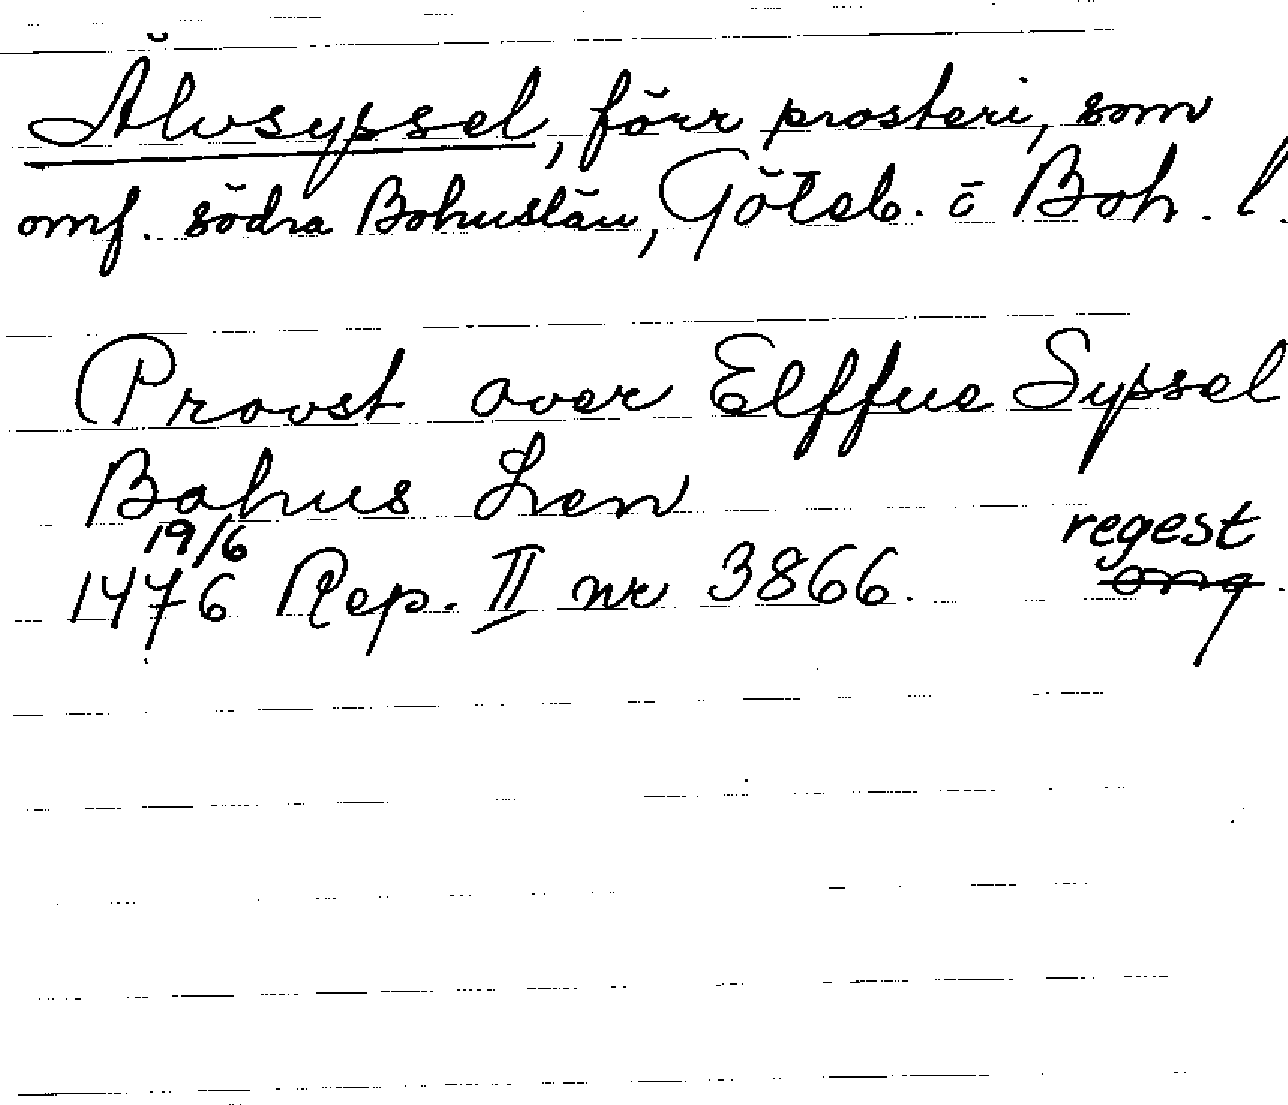 Älvsyssel, förr prosteri, som
omf. södra Bohuslän, Göteb. o Boh. l.
Provst over Elffue Syssel
Bahus Len
19/6 regest
1476 Rep. II nr 3866. orig.